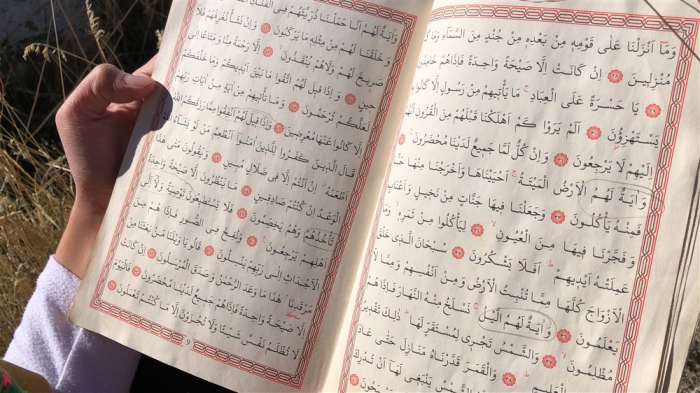 وَمَا اَنْزَلْنَا عَلٰى قَوْمِهِ مِنْ بَعْدِهِ مِنْ جُنْدٍ مِنَ السَّمَاءِ وَمَا
مُنْزِلِينَ ٢٨ اِنْ كَانَتْ اِلَّا صَيْحَةً وَاحِدَةً فَاِذَا هُمْ
٢٩ يَا حَسْرَةً عَلَى الْعِبَادِ مَا يَأْتِيهِمْ مِنْ رَسُولٍ اِلَّا كَانُوا
يَسْتَهْزِؤُنَ ٣٠ اَلَمْ يَرَوْا كَمْ اَهْلَكْنَا قَبْلَهُمْ مِنَ الْقُرُونِ
اِلَيْهِمْ لَا يَرْجِعُونَ ٣١ وَاِنْ كُلٌّ لَمَّا جَمِيعٌ لَدَيْنَا مُحْضَرُونَ ٣٢
وَاٰيَةٌ لَهُمُ الْاَرْضُ الْمَيْتَةُ اَحْيَيْنَاهَا وَاَخْرَجْنَا مِنْهَا
فَمِنْهُ يَأْكُلُونَ ٣٣ وَجَعَلْنَا فِيهَا جَنَّاتٍ مِنْ نَخِيلٍ وَاَعْنَابٍ
وَفَجَّرْنَا فِيهَا مِنَ الْعُيُونِ ٣٤ لِيَأْكُلُوا مِنْ ثَمَرِهِ وَمَا
عَمِلَتْهُ اَيْدِيهِمْ اَفَلَا يَشْكُرُونَ ٣٥ سُبْحَانَ الَّذِى خَلَقَ
الْاَزْوَاجَ كُلَّهَا مِمَّا تُنْبِتُ الْاَرْضُ وَمِنْ اَنْفُسِهِمْ وَمِمَّا لَا
يَعْلَمُونَ ٣٦ وَاٰيَةٌ لَهُمُ الَّيْلُ نَسْلَخُ مِنْهُ النَّهَارَ فَاِذَا هُمْ
مُظْلِمُونَ ٣٧ وَالشَّمْسُ تَجْرِى لِمُسْتَقَرٍّ لَهَا ذٰلِكَ تَقْدِيرُ
الْعَلِيمِ ٣٨ وَالْقَمَرَ قَدَّرْنَاهُ مَنَازِلَ حَتّٰى عَادَ
الشَّمْسُ يَنْبَغِى لَهَا اَنْ تُدْرِكَ
وَاٰيَةٌ لَهُمْ اَنَّا حَمَلْنَا ذُرِّيَّتَهُمْ فِى الْفُلْكِ
وَخَلَقْنَا لَهُمْ مِنْ مِثْلِهِ مَا يَرْكَبُونَ ٤٢ وَاِنْ نَشَأْ نُغْرِقْهُمْ فَلَا
صَرِيخَ لَهُمْ وَلَا هُمْ يُنْقَذُونَ ٤٣ اِلَّا رَحْمَةً مِنَّا وَمَتَاعًا اِلٰى
حِينٍ ٤٤ وَاِذَا قِيلَ لَهُمُ اتَّقُوا مَا بَيْنَ اَيْدِيكُمْ وَمَا خَلْفَكُمْ
لَعَلَّكُمْ تُرْحَمُونَ ٤٥ وَمَا تَأْتِيهِمْ مِنْ اٰيَةٍ مِنْ اٰيَاتِ رَبِّهِمْ
اِلَّا كَانُوا عَنْهَا مُعْرِضِينَ ٤٦ وَاِذَا قِيلَ لَهُمْ اَنْفِقُوا مِمَّا رَزَقَكُمُ اللّٰهُ
قَالَ الَّذِينَ كَفَرُوا لِلَّذِينَ اٰمَنُوا اَنُطْعِمُ مَنْ لَوْ يَشَاءُ اللّٰهُ
اَطْعَمَهُ اِنْ اَنْتُمْ اِلَّا فِى ضَلَالٍ مُبِينٍ ٤٧ وَيَقُولُونَ مَتٰى هٰذَا
الْوَعْدُ اِنْ كُنْتُمْ صَادِقِينَ ٤٨ مَا يَنْظُرُونَ اِلَّا صَيْحَةً وَاحِدَةً
تَأْخُذُهُمْ وَهُمْ يَخِصِّمُونَ ٤٩ فَلَا يَسْتَطِيعُونَ تَوْصِيَةً وَلَا اِلٰى
اَهْلِهِمْ يَرْجِعُونَ ٥٠ وَنُفِخَ فِى الصُّورِ فَاِذَا هُمْ مِنَ
الْاَجْدَاثِ اِلٰى رَبِّهِمْ يَنْسِلُونَ ٥١ قَالُوا يَا وَيْلَنَا مَنْ بَعَثَنَا مِنْ
مَرْقَدِنَا هٰذَا مَا وَعَدَ الرَّحْمٰنُ وَصَدَقَ الْمُرْسَلُونَ ٥٢ اِنْ كَانَتْ
اِلَّا صَيْحَةً وَاحِدَةً فَاِذَا هُمْ جَمِيعٌ لَدَيْنَا مُحْضَرُونَ ٥٣ فَالْيَوْمَ
لَا تُظْلَمُ نَفْسٌ شَيْئًا وَلَا تُجْزَوْنَ اِلَّا مَا كُنْتُمْ تَعْمَلُونَ ٥٤
9